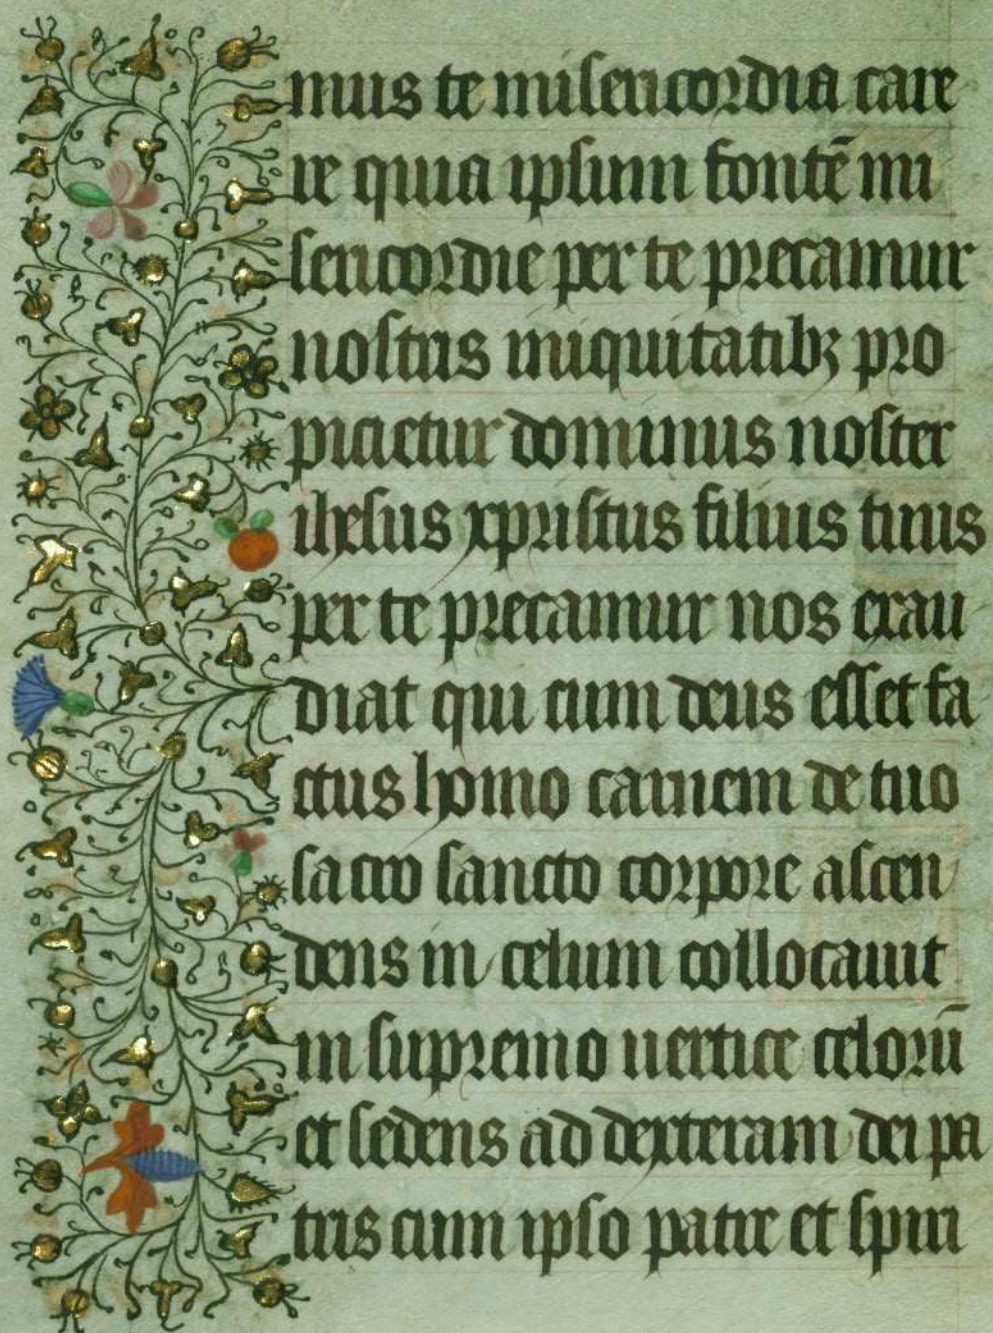 mus te misericordia care
re quia ipsum fontē mi
sericordie per te precamur
nostris iniquitatibꝫ pro
picietur dominus noster
ihesus xpristus filius tuus
per te precamur nos exau
diat qui cum deus esset fa
ctus homo carnem de tuo
sacro sancto corpore ascen
dens in celum collocauit
in supremo uertice celorū
et sedens ad dexteram dei pa
tris cum ipso patre et spiri